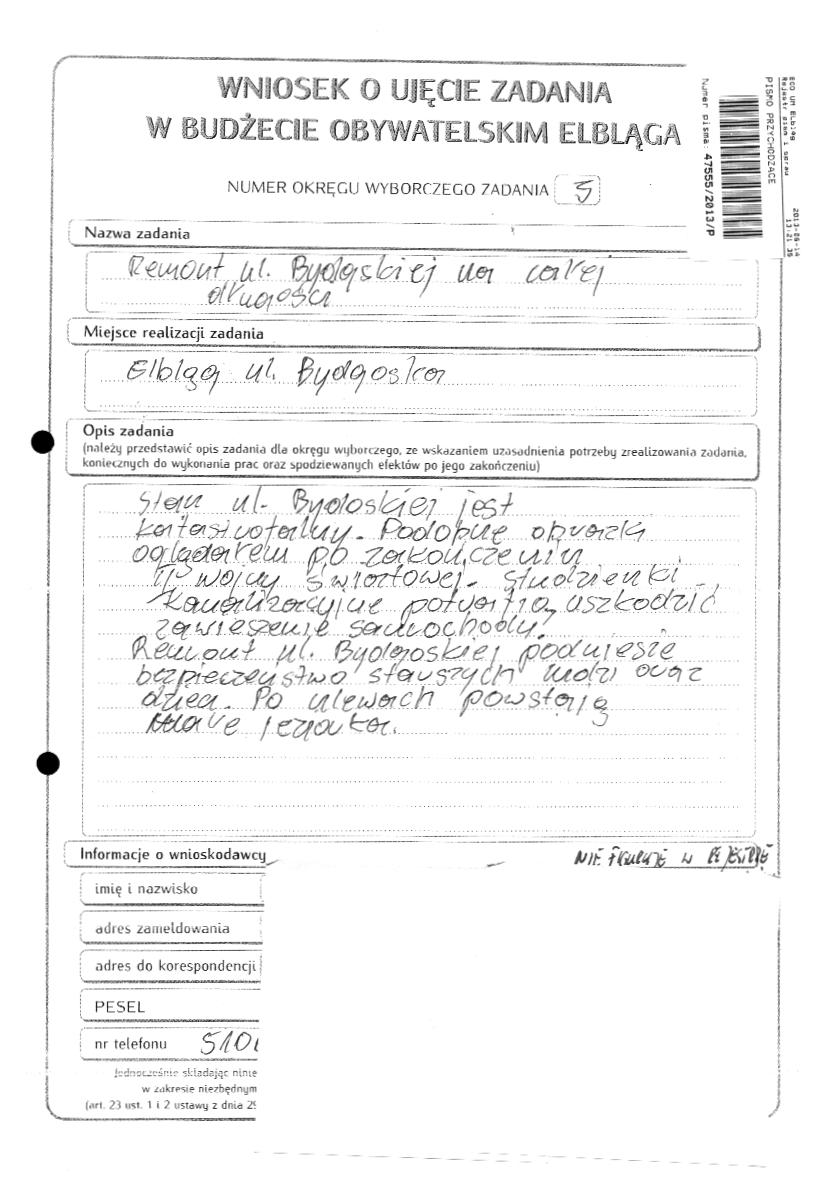 WNIOSEK O UJĘCIE ZADANIA
W BUDŻECIE OBYWATELSKIM ELBLĄGA
EOD UM Elbląg
Rejestr pism i spraw
PISMO PRZYCHODZĄCE
Numer pisma: 47555/2013/P
2013-06-14
NUMER OKRĘGU WYBORCZEGO ZADANIA 5
Nazwa zadania
Remont ul. Bydgskiej na całej
długości
Miejsce realizacji zadania
Elbląg ul. Bydgoska
Opis zadania
(należy przedstawić opis zadania dla okręgu wyborczego, ze wskazaniem uzasadnienia potrzeby zrealizowania zadania,
koniecznych do wykonania prac oraz spodziewanych efektów po jego zakończeniu)
Stan ul. Bydgoskiej jest
katastrofalny. Podobne obrazki
oglądałem po zakończeniu
II wojny światowej. Studzienki
kanalizacyjne potrafią uszkodzić
zawieszenie samochodu!
Remont ul. Bydgoskiej podniesie
bezpieczeństwo starszych ludzi oraz
dzieci. Po ulewach powstają
małe jeziorka.
Informacje o wnioskodawcy
NIE FIGURUJE W REJESTRZE
imię i nazwisko
adres zameldowania
adres do korespondencji
PESEL
nr telefonu 510
Jednocześnie składając
w zakresie niezbędnym
(art. 23 ust. 1 i 2 ustawy z dnia 29